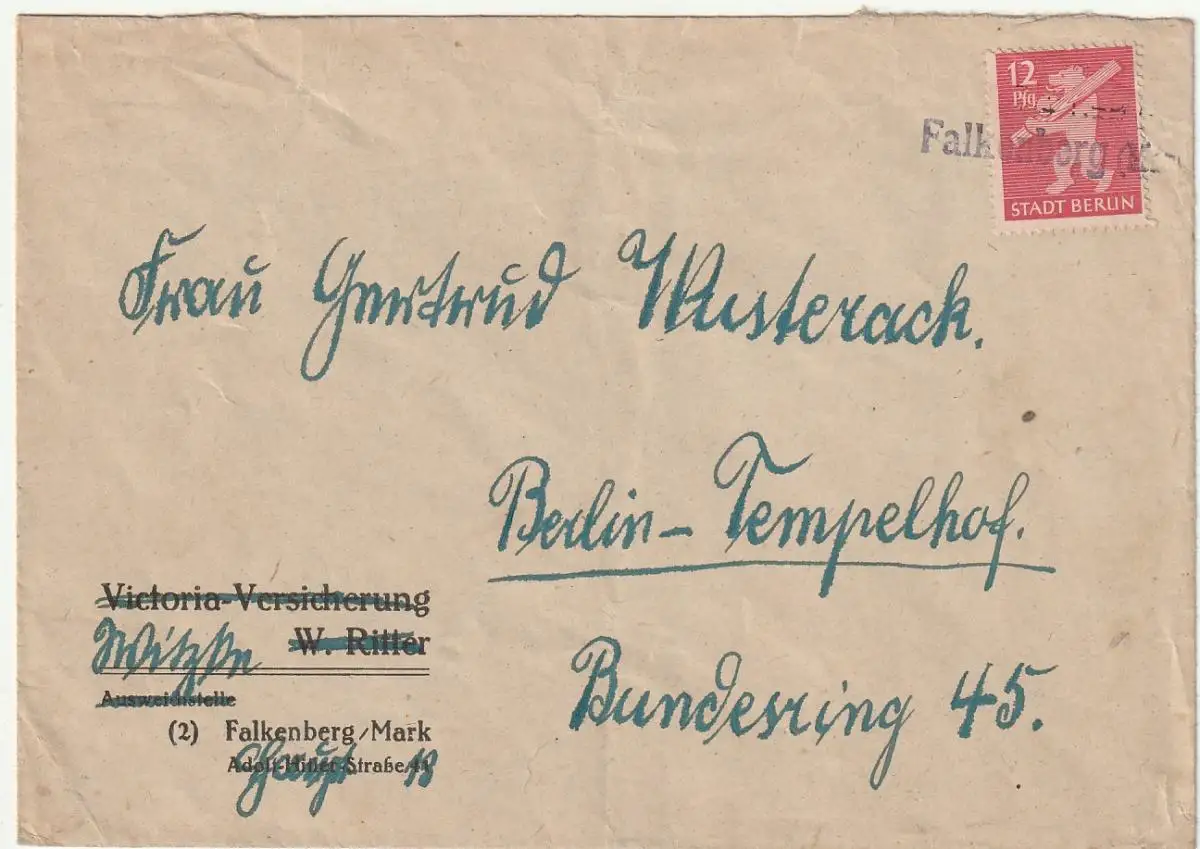 12
Pfg
STADT BERLIN
Frau Gertrud Wusterack.
Berlin-Tempelhof.
Bundesring 45.
Victoria-Versicherung
W. Ritter
Ausweichstelle
(2) Falkenberg/Mark
Adolf-Hitler-Straße
Haupt